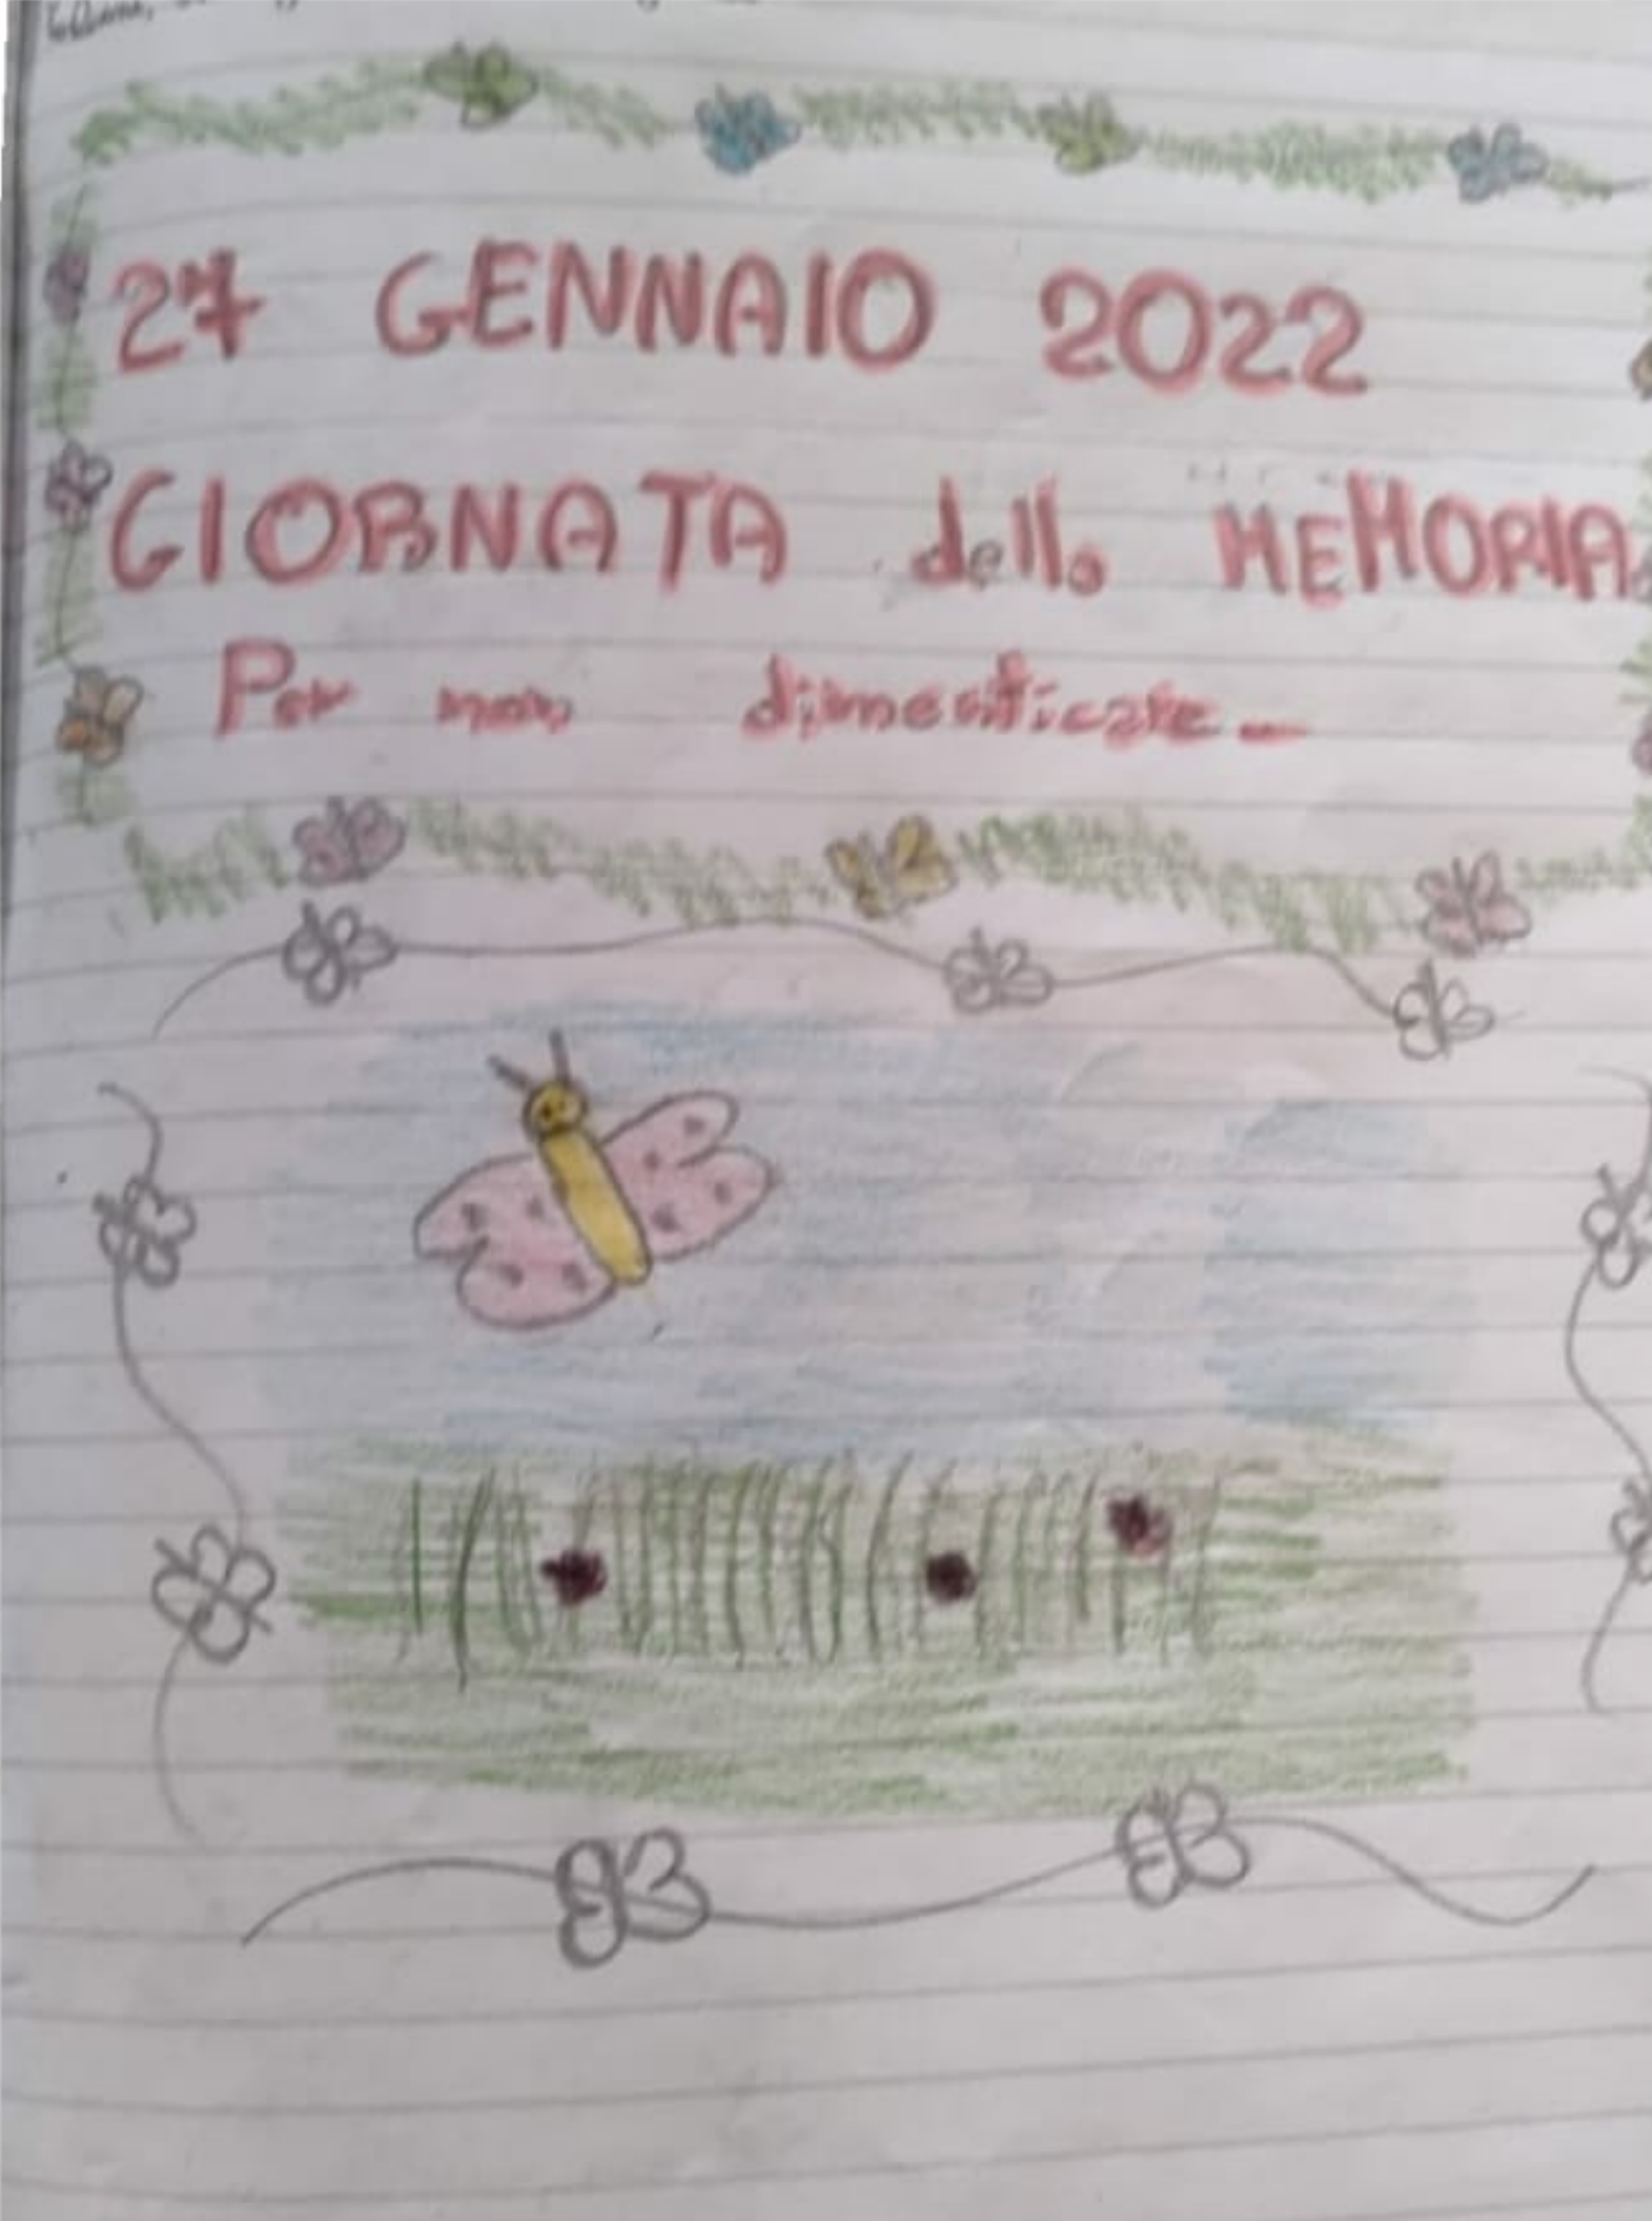 27 GENNAIO 2022
GIORNATA della MEMORIA
Per non dimenticare...